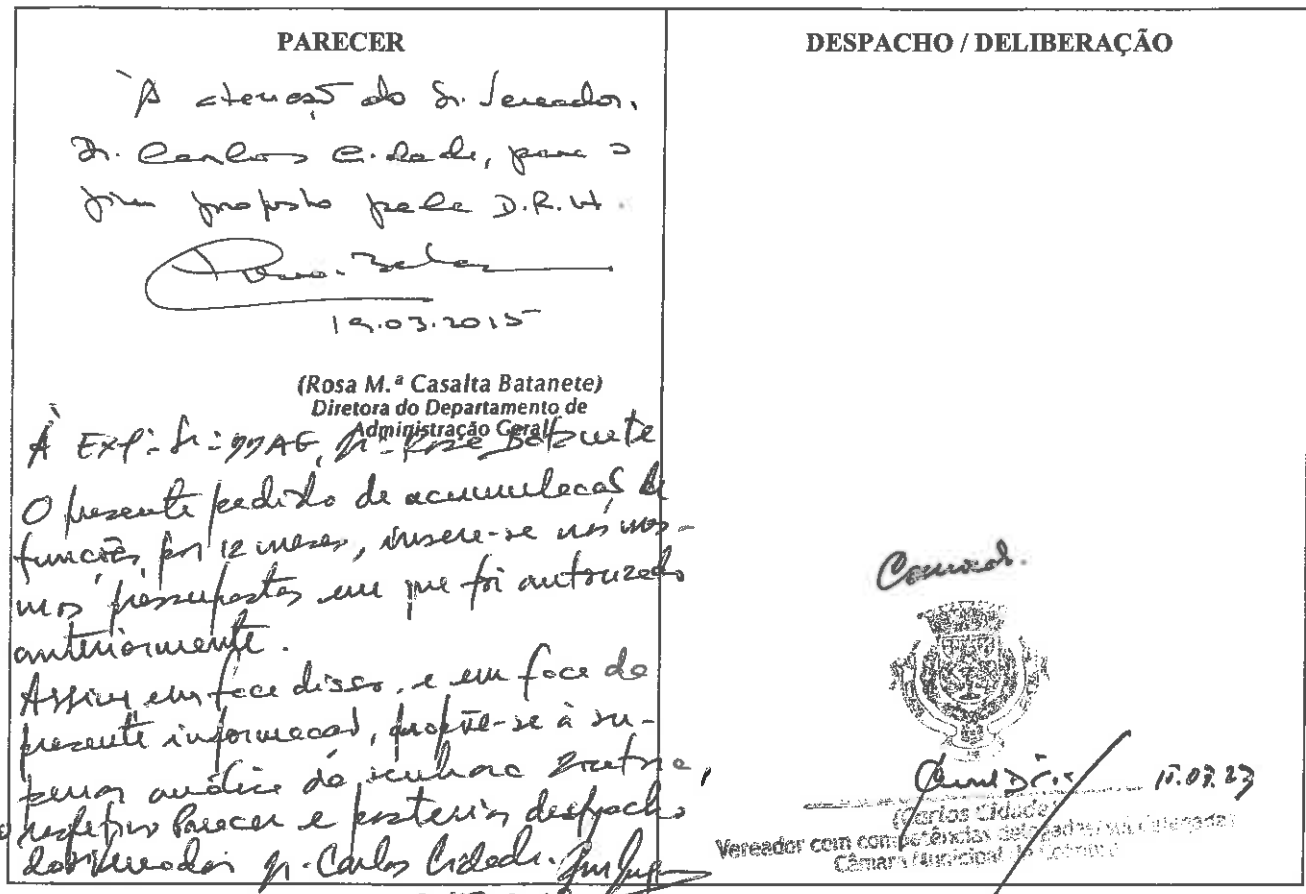 PARECER
À atenção do Sr. Vereador,
Dr. Carlos Cidade, para o
fim proposto pela D.R.H.
19.03.2015
(Rosa M.ª Casalta Batanete)
Diretora do Departamento de
Administração Geral
À Exª Srª DDAG, Drª Rosa Batanete
O presente pedido de acumulação de
funções, por 12 meses, insere-se nos mes-
mos pressupostos em que foi autorizado
anteriormente.
Assim em face disso, e em face da
presente informação, propõe-se à su-
perior análise da senhora Diretora,
o respetivo Parecer e posterior despacho
do Vereador Dr. Carlos Cidade.
DESPACHO / DELIBERAÇÃO
Concordo.
15.03.23
(Carlos Cidade)
Vereador com competências delegadas/sub delegadas
Câmara Municipal de Coimbra